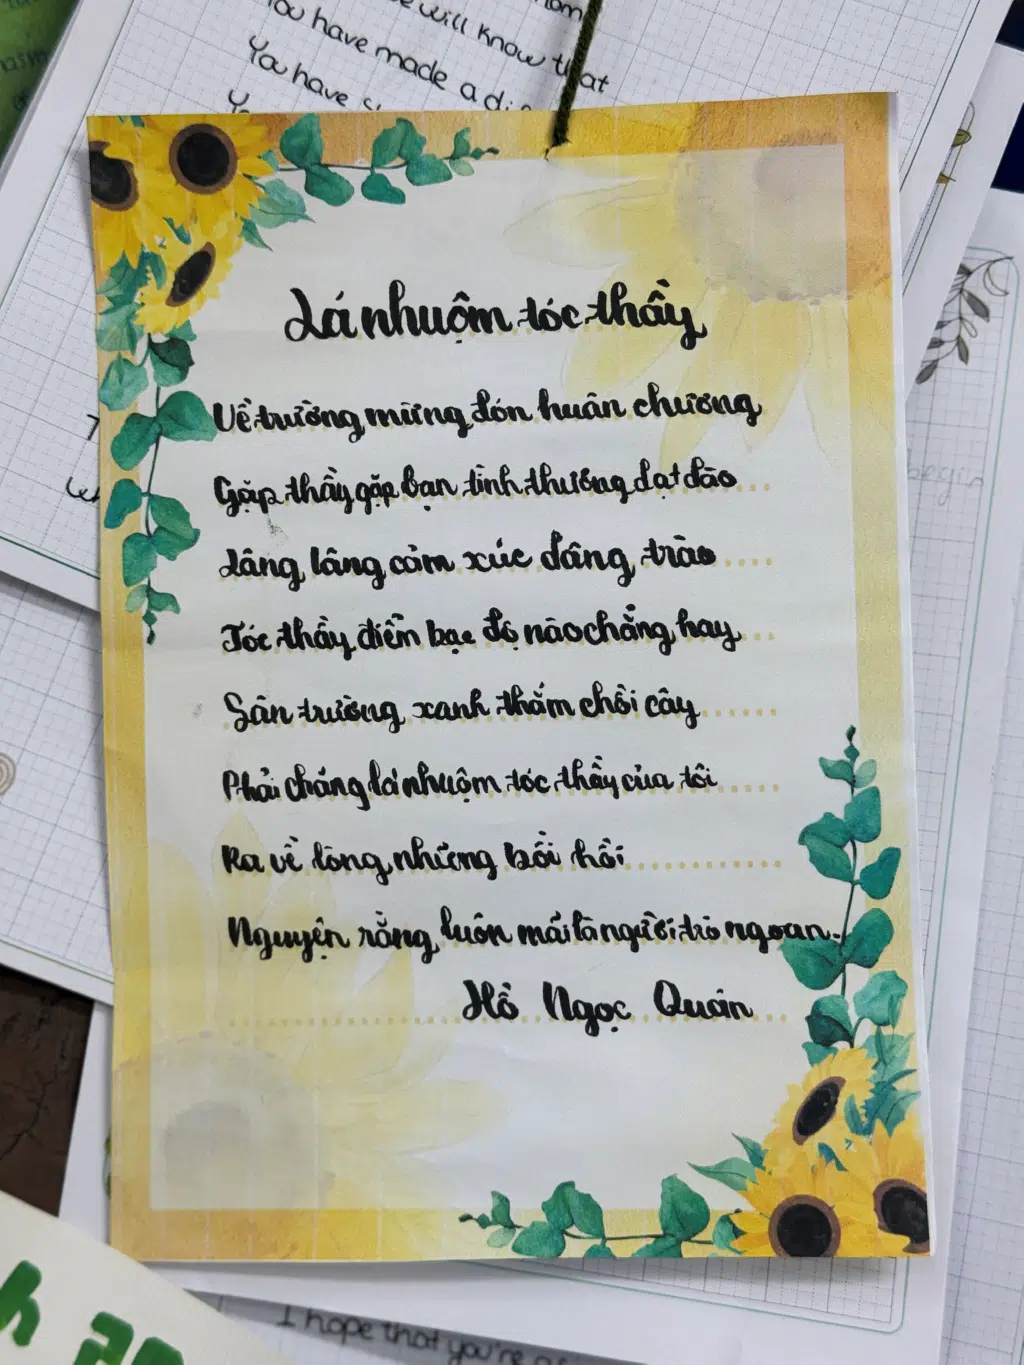 will know that
You have made a
You have
Lá nhuộm tóc thầy
Về trường mừng đón huân chương
Gặp thầy gặp bạn tình thương dạt dào
Lâng lâng cảm xúc dâng trào
Tóc thầy điểm bạc độ nào chẳng hay
Sân trường xanh thắm chồi cây
Phải chăng lá nhuộm tóc thầy của tôi
Ra về lòng những bồi hồi
Nguyện rằng luôn mãi là người trò ngoan.
Hồ Ngọc Quân
begin
I hope that you're